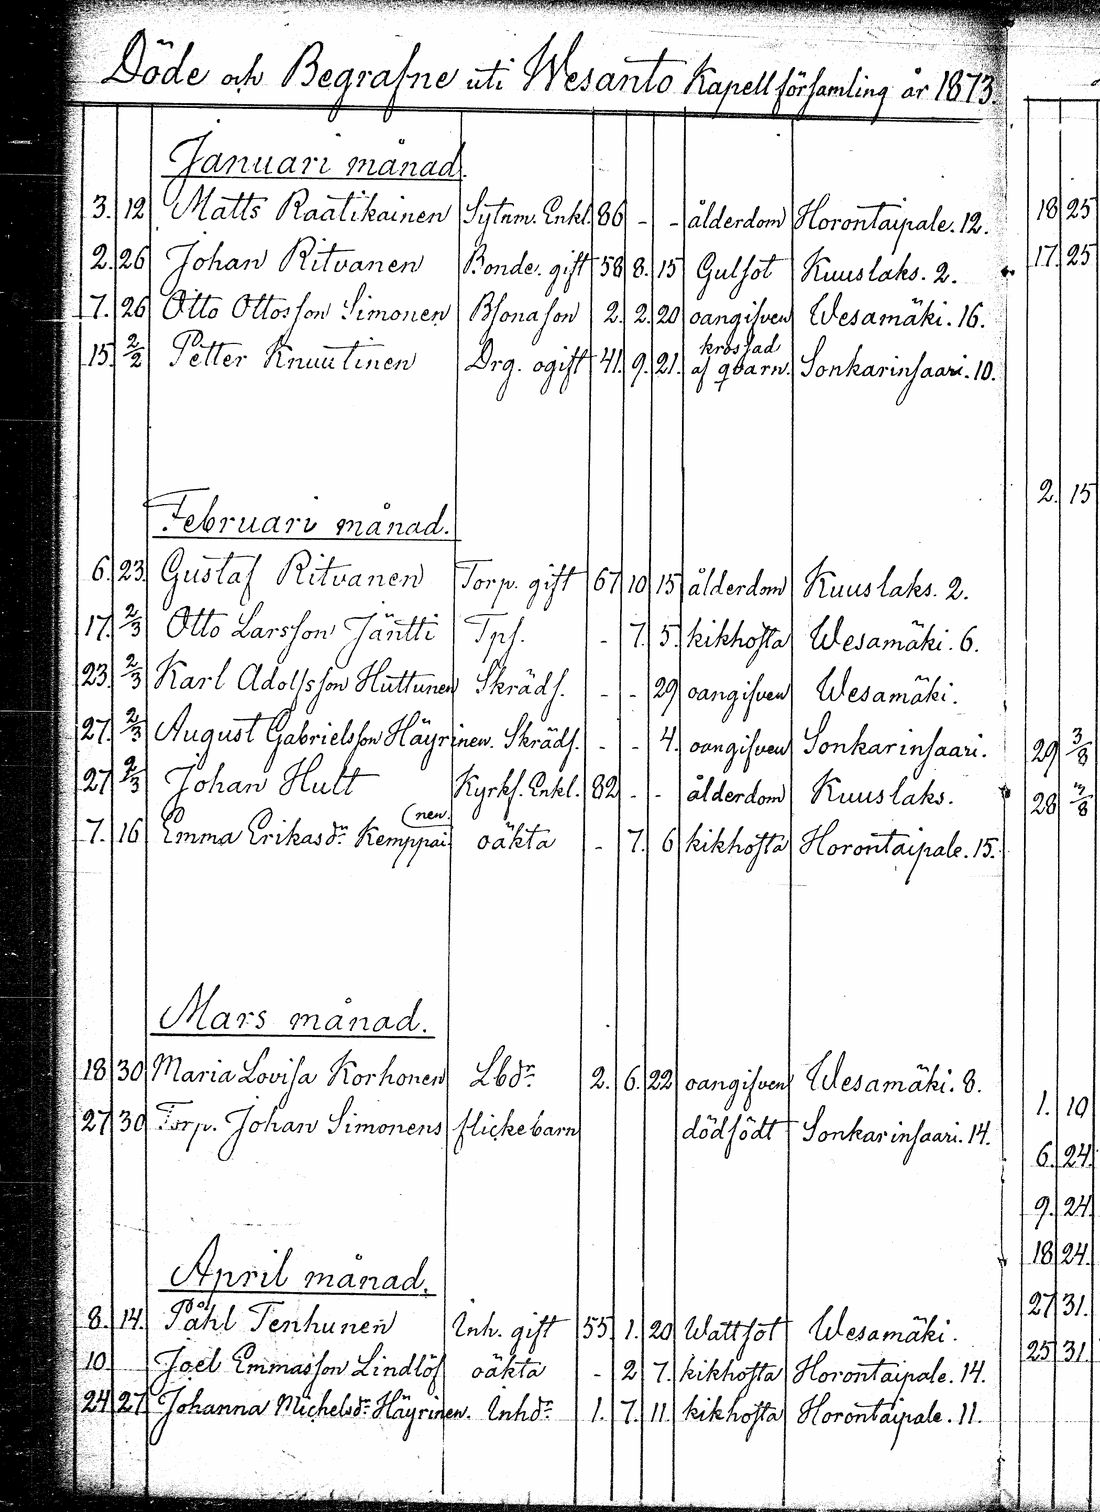 Döde och Begrafne uti Wesanto Kapellförsamling år 1873.
Januari månad.
3. 12 Matts Raatikainen Sytnm. Enkl. 86 - - ålderdom Horontaipale. 12.
2. 26 Johan Ritvanen Bonde. gift 58 8. 15 Gulsot Kuuslaks. 2.
7. 26 Otto Ottosson Simonen Bsonason 2. 2. 20 oangifven Wesamäki. 16.
15. 2/2 Petter Knuutinen Drg. ogift 41. 9. 21. krossad af qvarn. Sonkarinsaari. 10.
Februari månad.
6. 23. Gustaf Ritvanen Torp. gift 67 10 15 ålderdom Kuuslaks. 2.
17. 2/3 Otto Larsson Jäntti Tps. - 7. 5. kikhosta Wesamäki. 6.
23. 2/3 Karl Adolfsson Huttunen Skräds. - - 29 oangifven Wesamäki.
27. 2/3 August Gabrielsson Häyrinen. Skräds. - - 4. oangifven Sonkarinsaari.
27 2/3 Johan Hult Kyrks. Enkl. 82 - - ålderdom Kuuslaks.
7. 16 Emma Eriksdr. Kemppai(nen. oäkta - 7. 6 kikhosta Horontaipale. 15.
Mars månad.
18 30 Maria Lovisa Korhonen Lbdr. 2. 6. 22 oangifven Wesamäki. 8.
27 30 Torp. Johan Simonens flickebarn dödfödt Sonkarinsaari. 14.
April månad.
8. 14. Påhl Tenhunen Inh. gift 55 1. 20 Wattsot Wesamäki.
10 Joel Emmasson Lindlöf oäkta - 2 7. kikhosta Horontaipale. 14.
24 27 Johanna Michelsdr. Häyrinen. Inhdr. 1. 7. 11. kikhosta Horontaipale. 11.
18 25
17. 25
2. 15
29 3/8
28 3/8
1. 10
6. 24.
9. 24.
18 24.
27 31.
25 31.